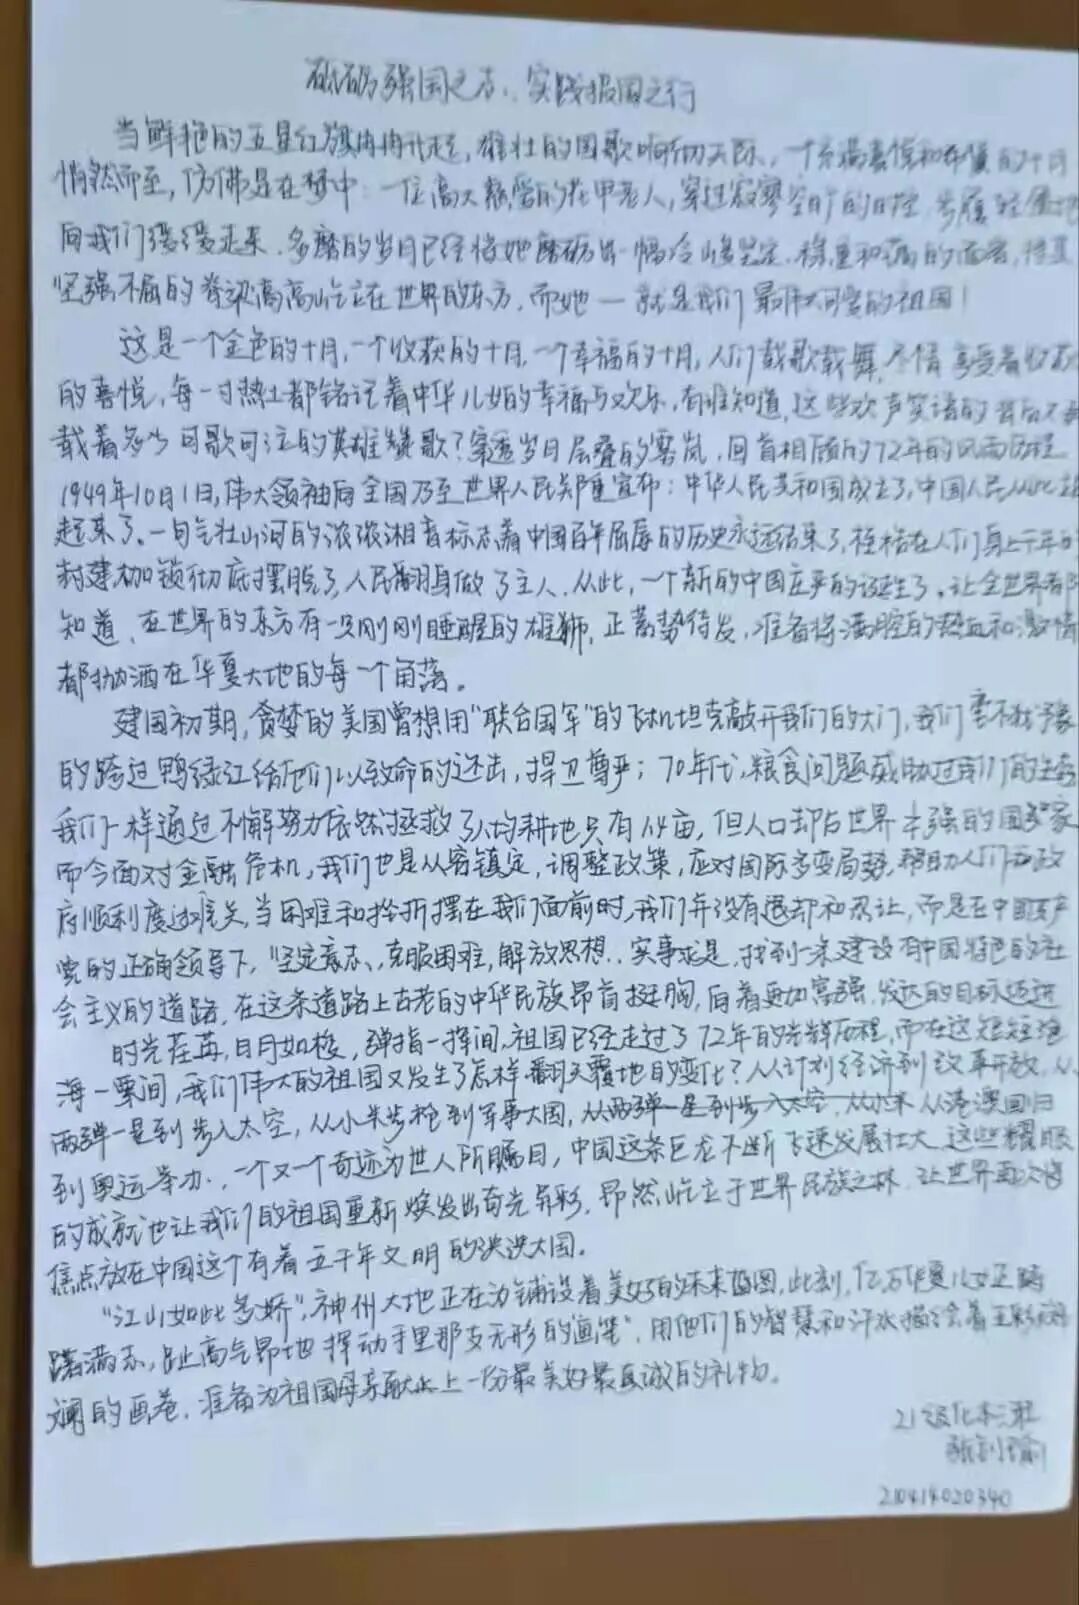 砥砺强国之志、实践报国之行
当鲜艳的五星红旗冉冉升起，雄壮的国歌响彻天际，一个充满喜悦和的十月
悄然而至，仿佛是在梦中：一位高大慈祥的花甲老人，穿过寂寥空旷的时空，步履轻健地
向我们缓缓走来。多磨的岁月已经将她磨砺出一幅冷峻坚定、稳重和蔼的面容，
坚强不屈的脊梁高高屹立在世界的东方，而她一就是我们最伟大可爱的祖国！
这是一个金色的十月，一个收获的十月，一个幸福的十月，人们载歌载舞，尽情享受着收获
的喜悦，每一寸热土都铭记着中华儿女的幸福与欢乐，有谁知道，这些欢声笑语的背后又
载着多少可歌可泣的英雄赞歌？穿透岁月层叠的雾岚，回首相顾的72年的风雨历程。
1949年10月1日，伟大领袖向全国乃至世界人民郑重宣布：中华人民共和国成立了，中国人民从此站
起来了。一句气壮山河的浓浓湘音标志着中国百年屈辱的历史永远结束了，桎梏在人们身上千年的
封建枷锁彻底摆脱了，人民翻身做了主人。从此，一个新的中国庄严的诞生了。让全世界都
知道，在世界的东方有一只刚刚睡醒的雄狮，正蓄势待发，准备将满腔的热血和激情
都抛洒在华夏大地的每一个角落。
建国初期，贪婪的美国曾想用“联合国军”的飞机坦克敲开我们的大门，我们毫不犹豫
的跨过鸭绿江给他们以致命的还击，捍卫尊严；70年代，粮食问题威胁过我们的生活
我们一样通过不懈努力依然拯救了人均耕地只有1.4亩，但人口却占世界强的国家
而今面对金融危机，我们也是从容镇定，调整政策，应对国际多变局势，帮助人们和政
府顺利度过难关，当困难和挫折摆在我们面前时，我们并没有退却和忍让，而是在中国共产
党的正确领导下，坚定意志、克服困难，解放思想、实事求是，找到一条建设有中国特色的社
会主义的道路，在这条道路上古老的中华民族昂首挺胸，向着更加富强、发达的目标迈进
时光荏苒，日月如梭，弹指一挥间，祖国已经走过了72年的光辉历程，而在这短短沧
海一粟间，我们伟大的祖国又发生了怎样翻天覆地的变化？从计划经济到改革开放，从
两弹一星到步入太空，从小米步枪到军事大国，从两弹一星到步入太空，从小米从港澳回归
到奥运举办，一个又一个奇迹为世人所瞩目，中国这条巨龙不断飞速发展壮大，这些耀眼
的成就也让我们的祖国重新焕发出奇光异彩，昂然屹立于世界民族之林，让世界再次将
焦点放在中国这个有着五千年文明的泱泱大国。
“江山如此多娇”，神州大地正在为铺设着美好的未来蓝图，此刻，亿万华夏儿女正踌
躇满志，趾高气昂地挥动手里那支无形的“画笔”，用他们的智慧和汗水描绘着五彩斑
斓的画卷，准备为祖国母亲献上一份最美好最真诚的礼物。
21级化本三班
210414020340